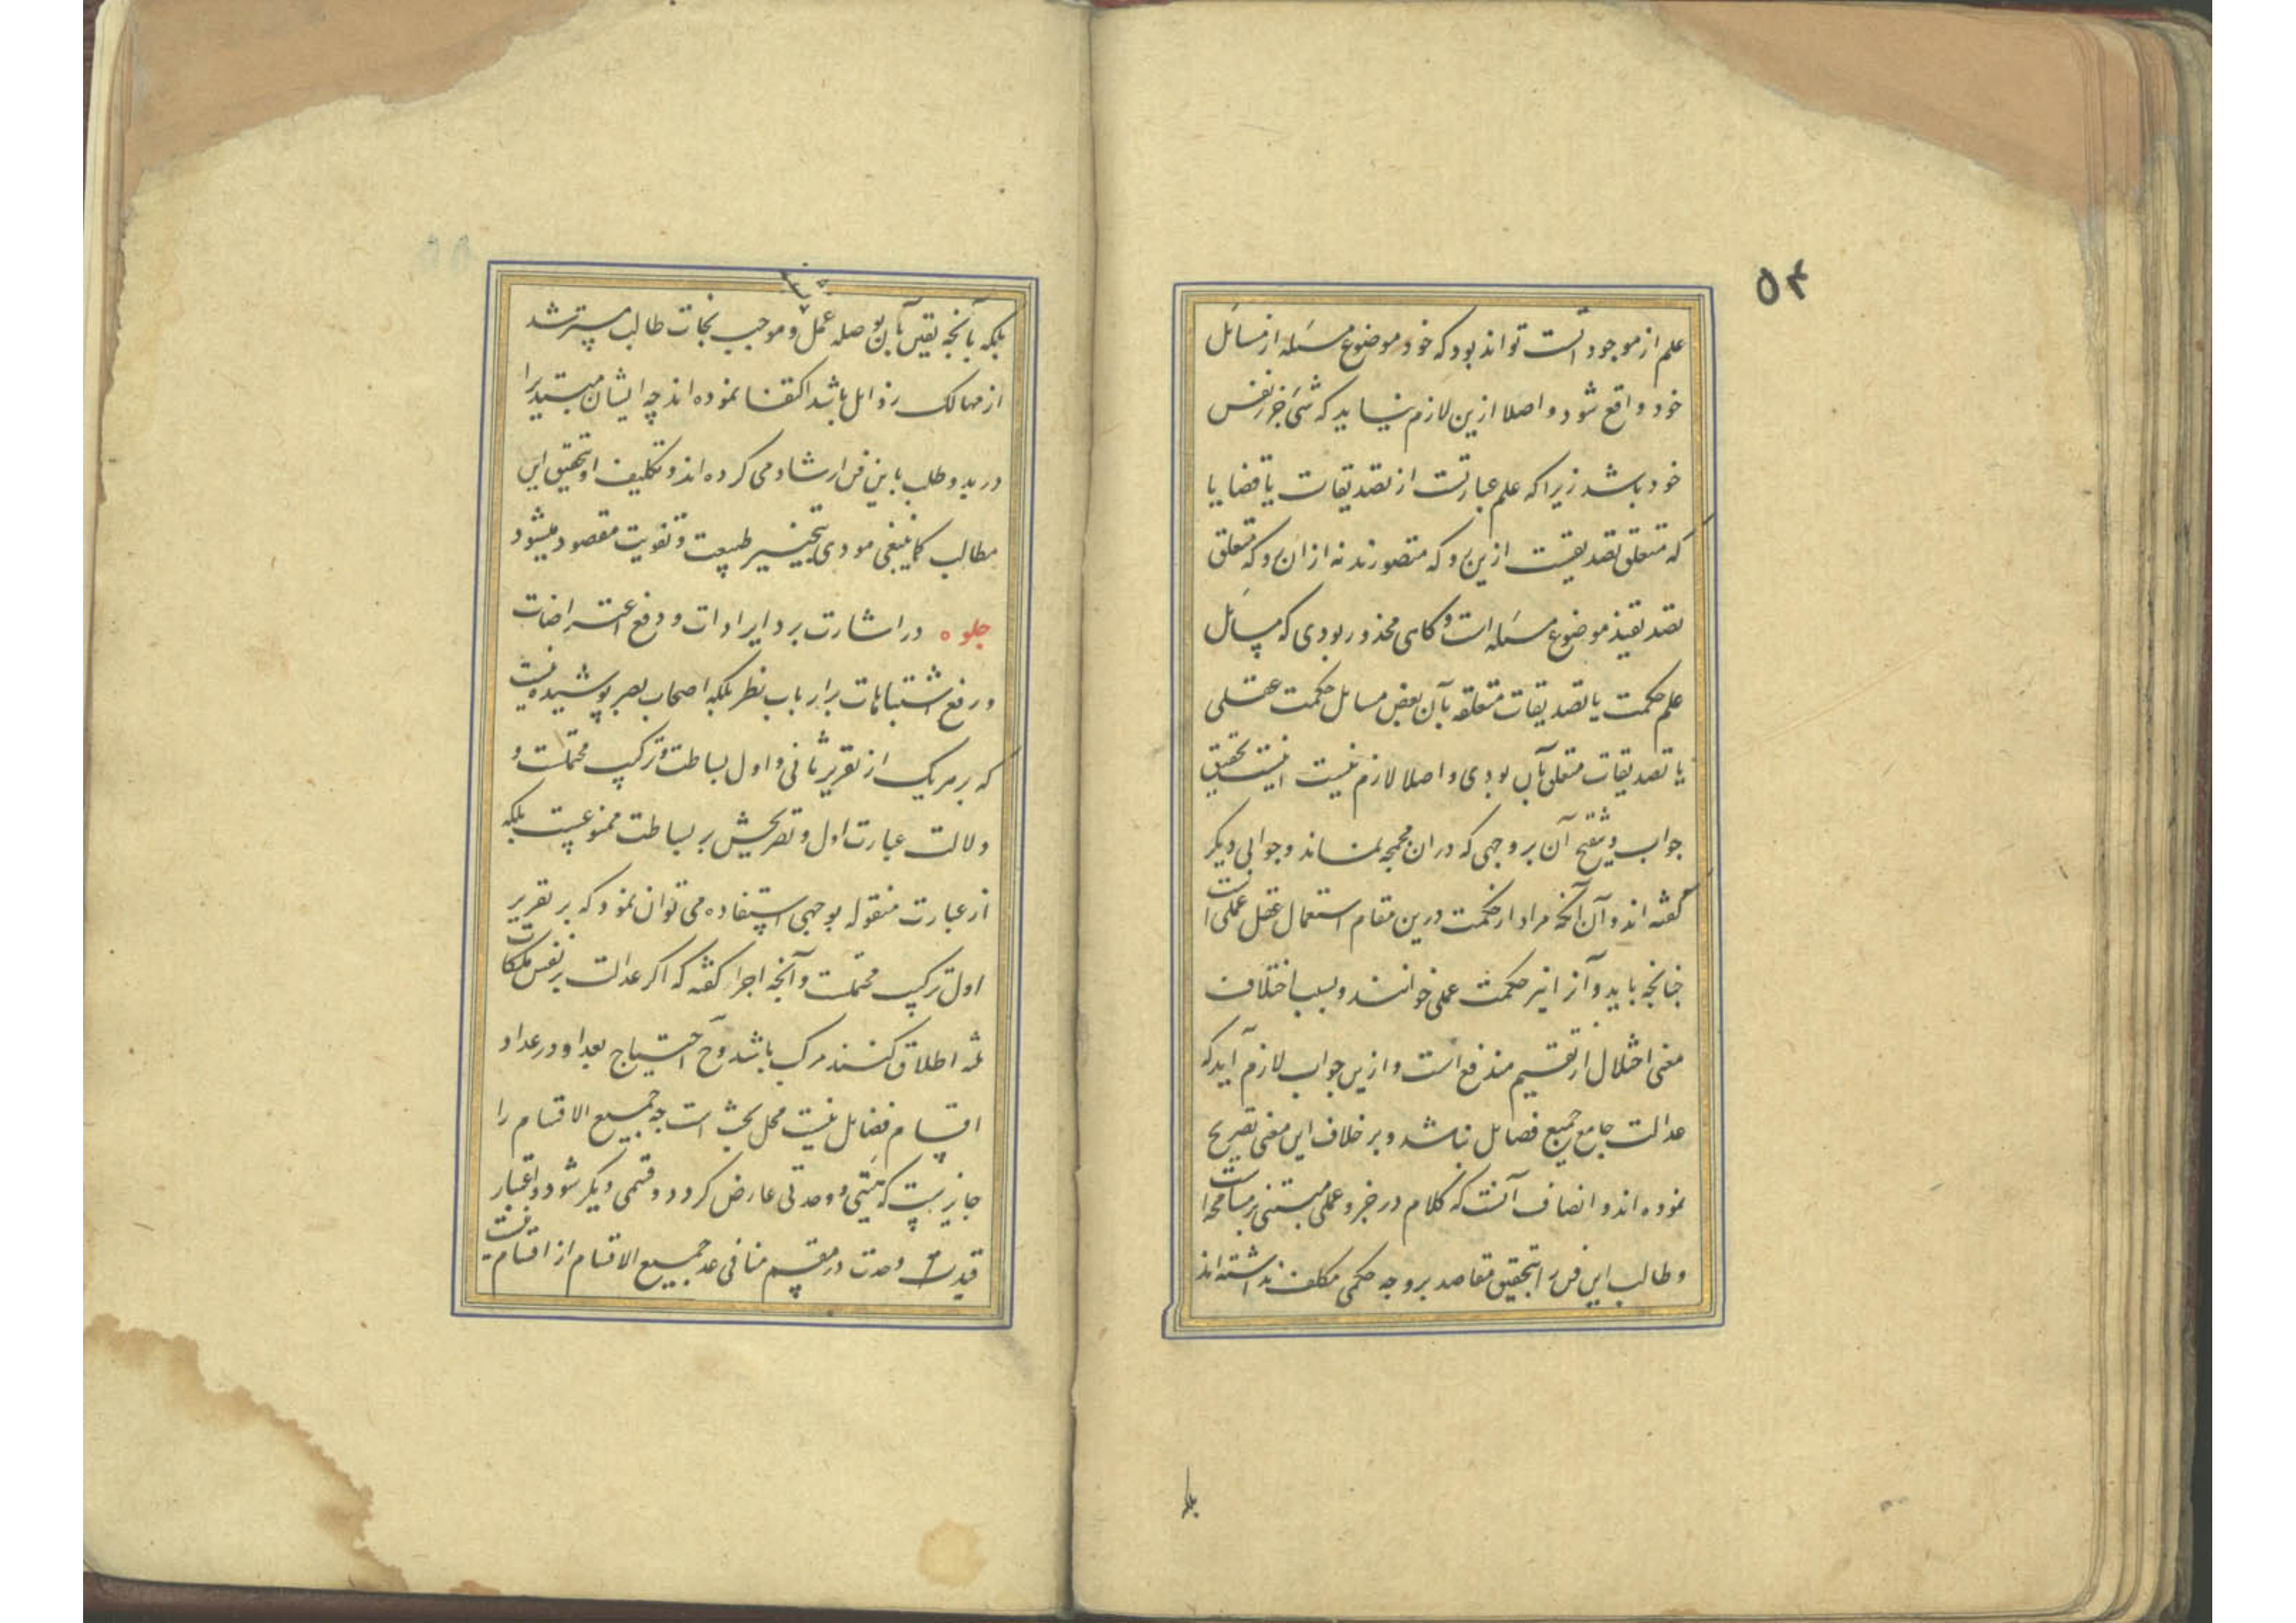 ۵۴
علم از موجود است تواند بود که خود موضوع مسئله از مسائل
خود واقع شود و اصلا ازین لازم نیاید که شئ جزء نفس
خود باشد زیرا که علم عبارتست از تصدیقات یا قضایا
که متعلق تصدیقست ازین رو که متصورند نه از ان رو که متعلق
تصدیقند موضوع مسئله است و گاهی محذور بودی که مسائل
علم حکمت یا تصدیقات متعلقه بآن بعض مسایل حکمت عملی
یا تصدیقات متعلق بآن بودی و اصلا لازم نیست اینست تحقیق
جواب و تنقیح آن بر وجهی که دران مجمجه نماند و جوابی دیگر
گفته اند و آن آنکه مراد از حکمت درین مقام استعمال عقل عملی است
چنانچه باید و آنرا نیز حکمت عملی خوانند و بسبب اختلاف
معنی اختلال از تقسیم مندفع است و ازین جواب لازم آید که
عدالت جامع جمیع فضایل نباشد و بر خلاف این معنی تصریح
نموده اند و انصاف آنست که کلام در جزو عملی مبتنی بر مسامحات
و طالب این فن را بتحقیق مقاصد بر وجه حکمی مکلف نداشته اند
بلکه
بلکه بآنچه یقین بآن بوصله عمل و موجب نجات طالب مسترشد
از مهالک رذایل باشد اکتفا نموده اند چه ایشان مبتدیرا
در بدو طلب باین فن ارشاد می کرده اند و تکلیف او بتحقیق این
مطالب کما ینبغی مودی بتحییر طبیعت و تفویت مقصود میشود
جلوه در اشارت برد ایرادات و دفع اعتراضات
و رفع اشتباهات بر ارباب نظر بلکه اصحاب بصر پوشیده نیست
که بر هریک از تقریر ثانی و اول بساطت و ترکیب محتملست و
دلالت عبارت اول و تصریحش بر بساطت ممنوعست بلکه
از عبارت منقوله بوجهی استفاده می توان نمود که بر تقریر
اول ترکیب محتملست و آنچه اجرا گفته که اگر عدالت بر نفس ملکات
ثلثه اطلاق کنند مرکب باشد و ح احتیاج بعد او در عداد
اقسام فضایل نیست محل بحث است چه جمیع الاقسام را
جایز نیست که هیئتی و وحدتی عارض گردد و قسمی دیگر شود و اعتبار
قید وحدت در مقسم منافی عد جمیع الاقسام از اقسام نیست